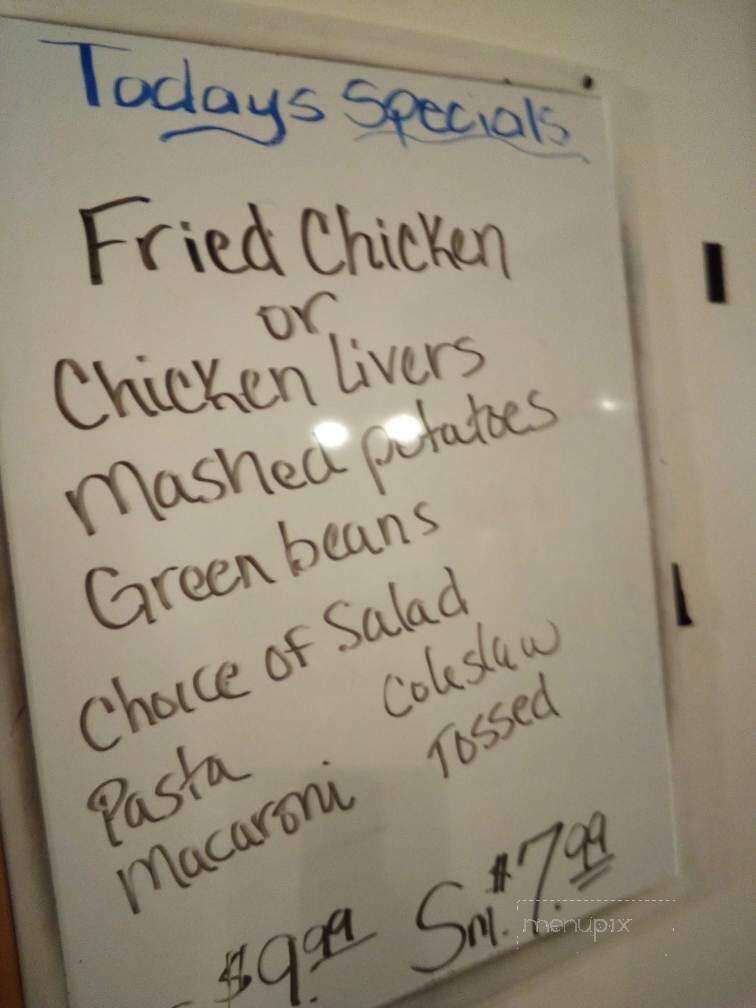 Todays Specials
Fried Chicken
or
Chicken livers
Mashed potatoes
Green beans
Choice of Salad
Pasta Coleslaw
Macaroni Tossed
$9.99 Sm. $7.99
menupix